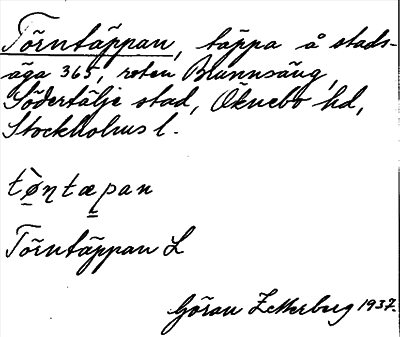 Törntäppan, täppa å stads-
äga 365, roten Brunnsäng,
Södertälje stad, Öknebo hd,
Stockholms l.
tø̀ṇtæpan
Törntäppan L
Göran Zetterberg 1937.